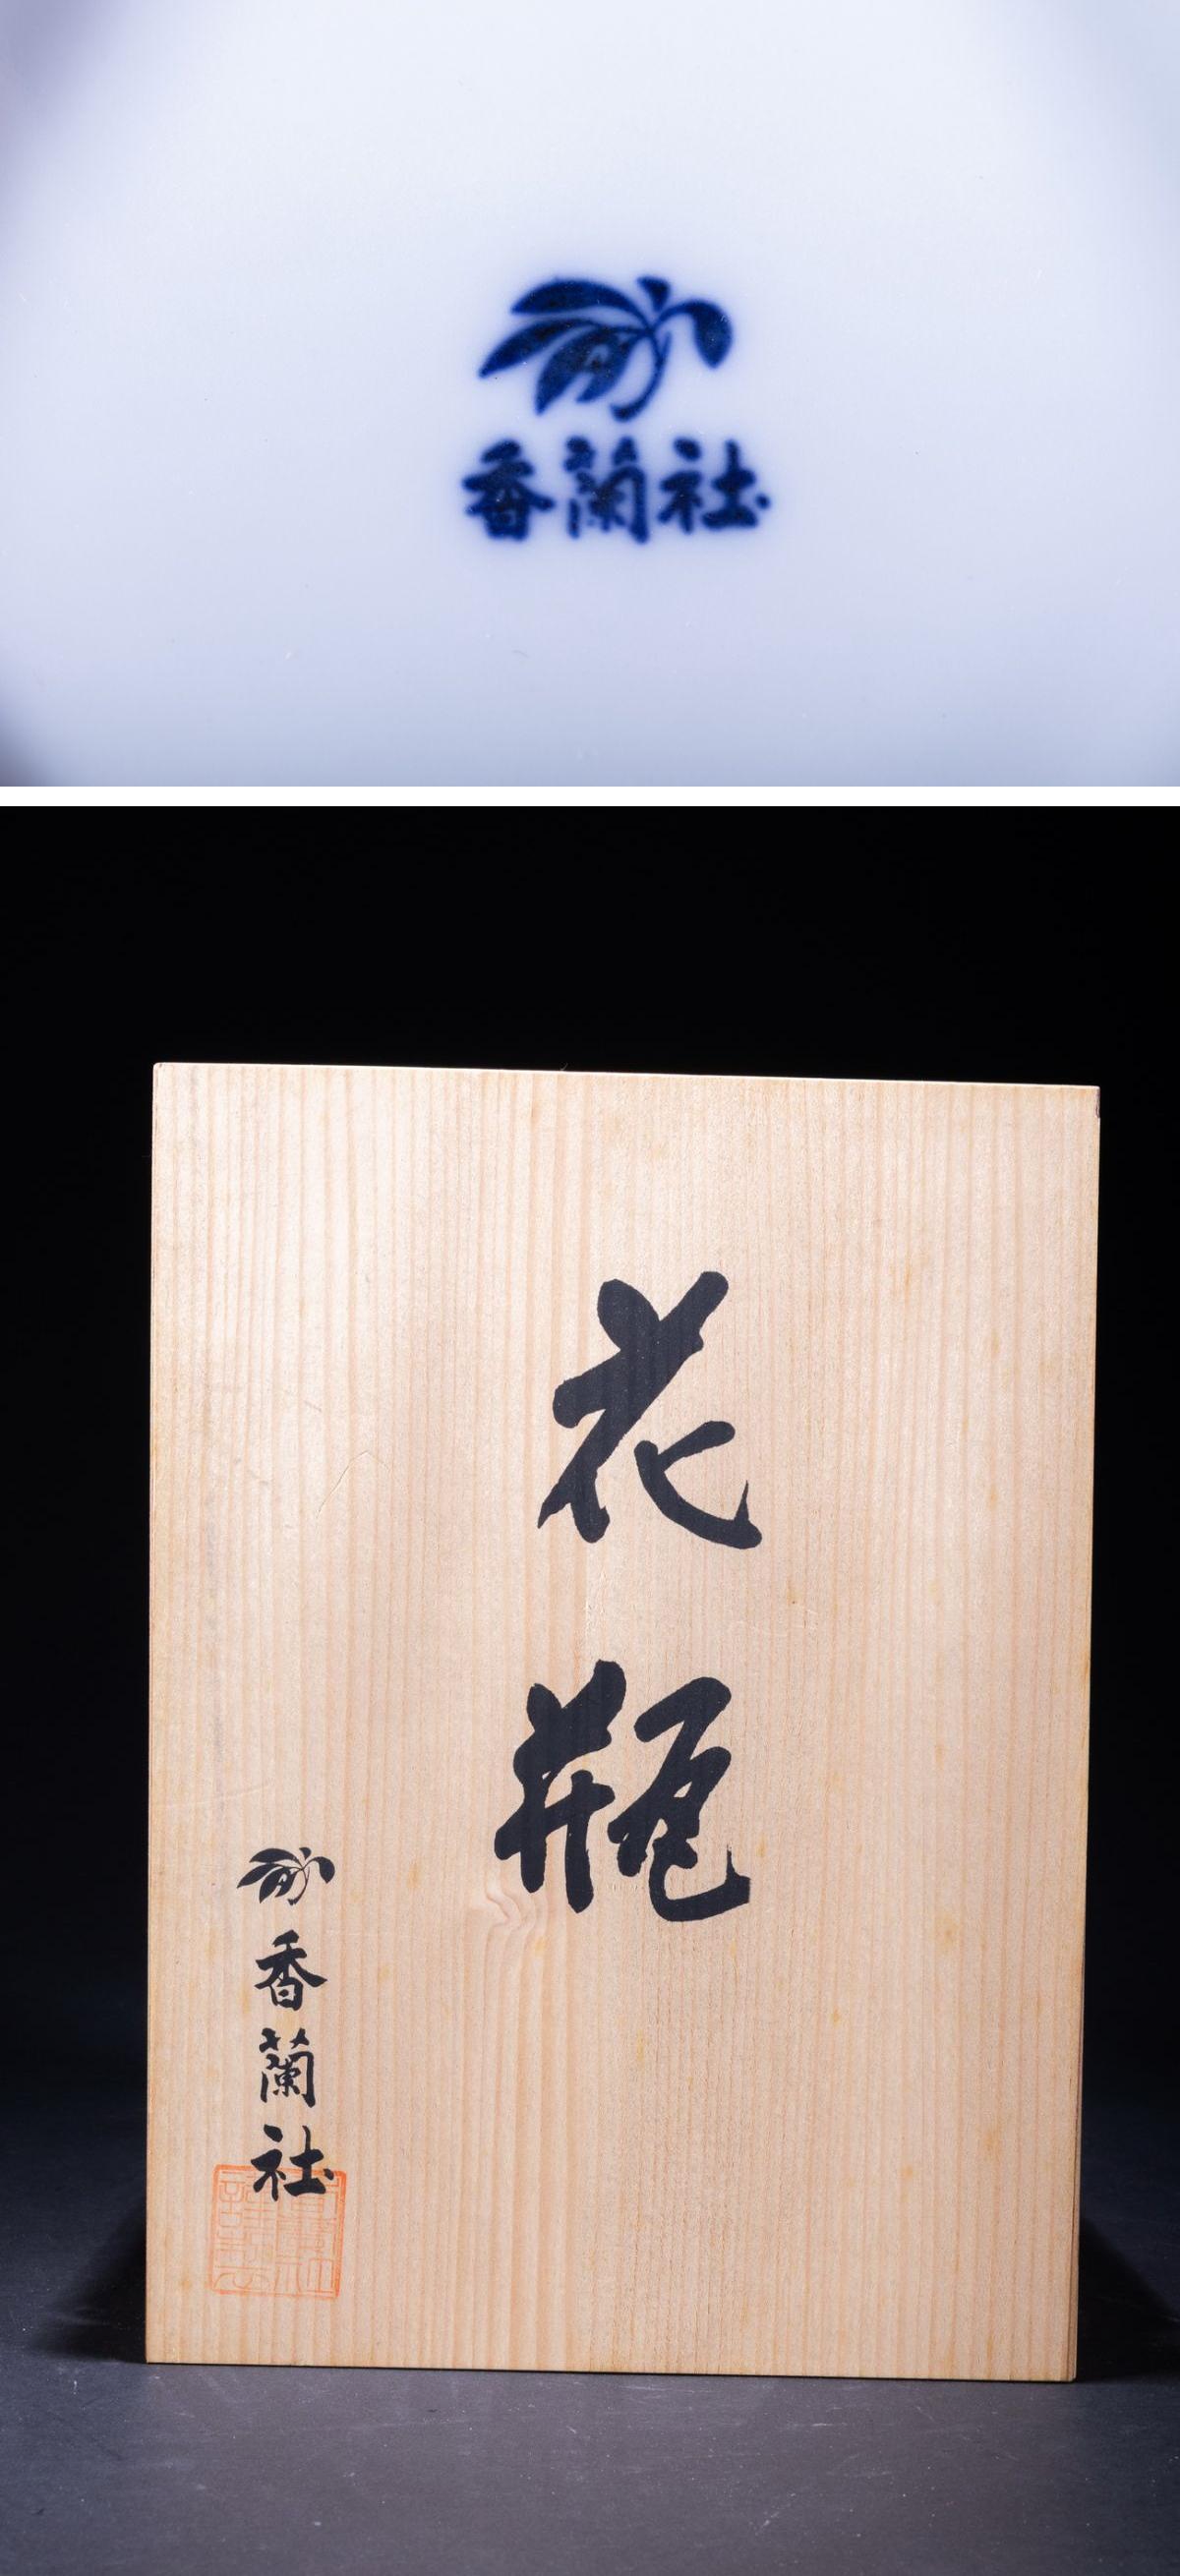 香蘭社
花瓶
香蘭社